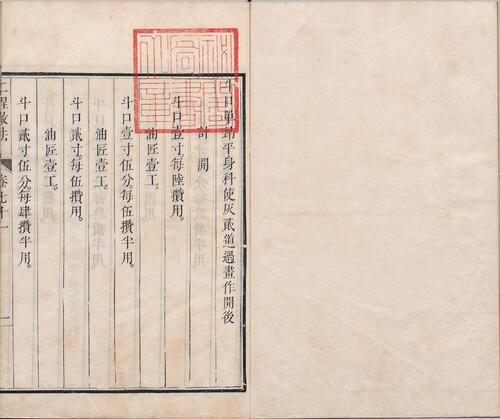 斗口單昂平身科使灰貳道過畫作開後
計開
斗口壹寸。每陸攢用。
油匠壹工。
斗口壹寸伍分。每伍攢半用。
油匠壹工。
斗口貳寸。每伍攢用。
油匠壹工。
斗口貳寸伍分。每肆攢半用。
工程做法
卷七十一